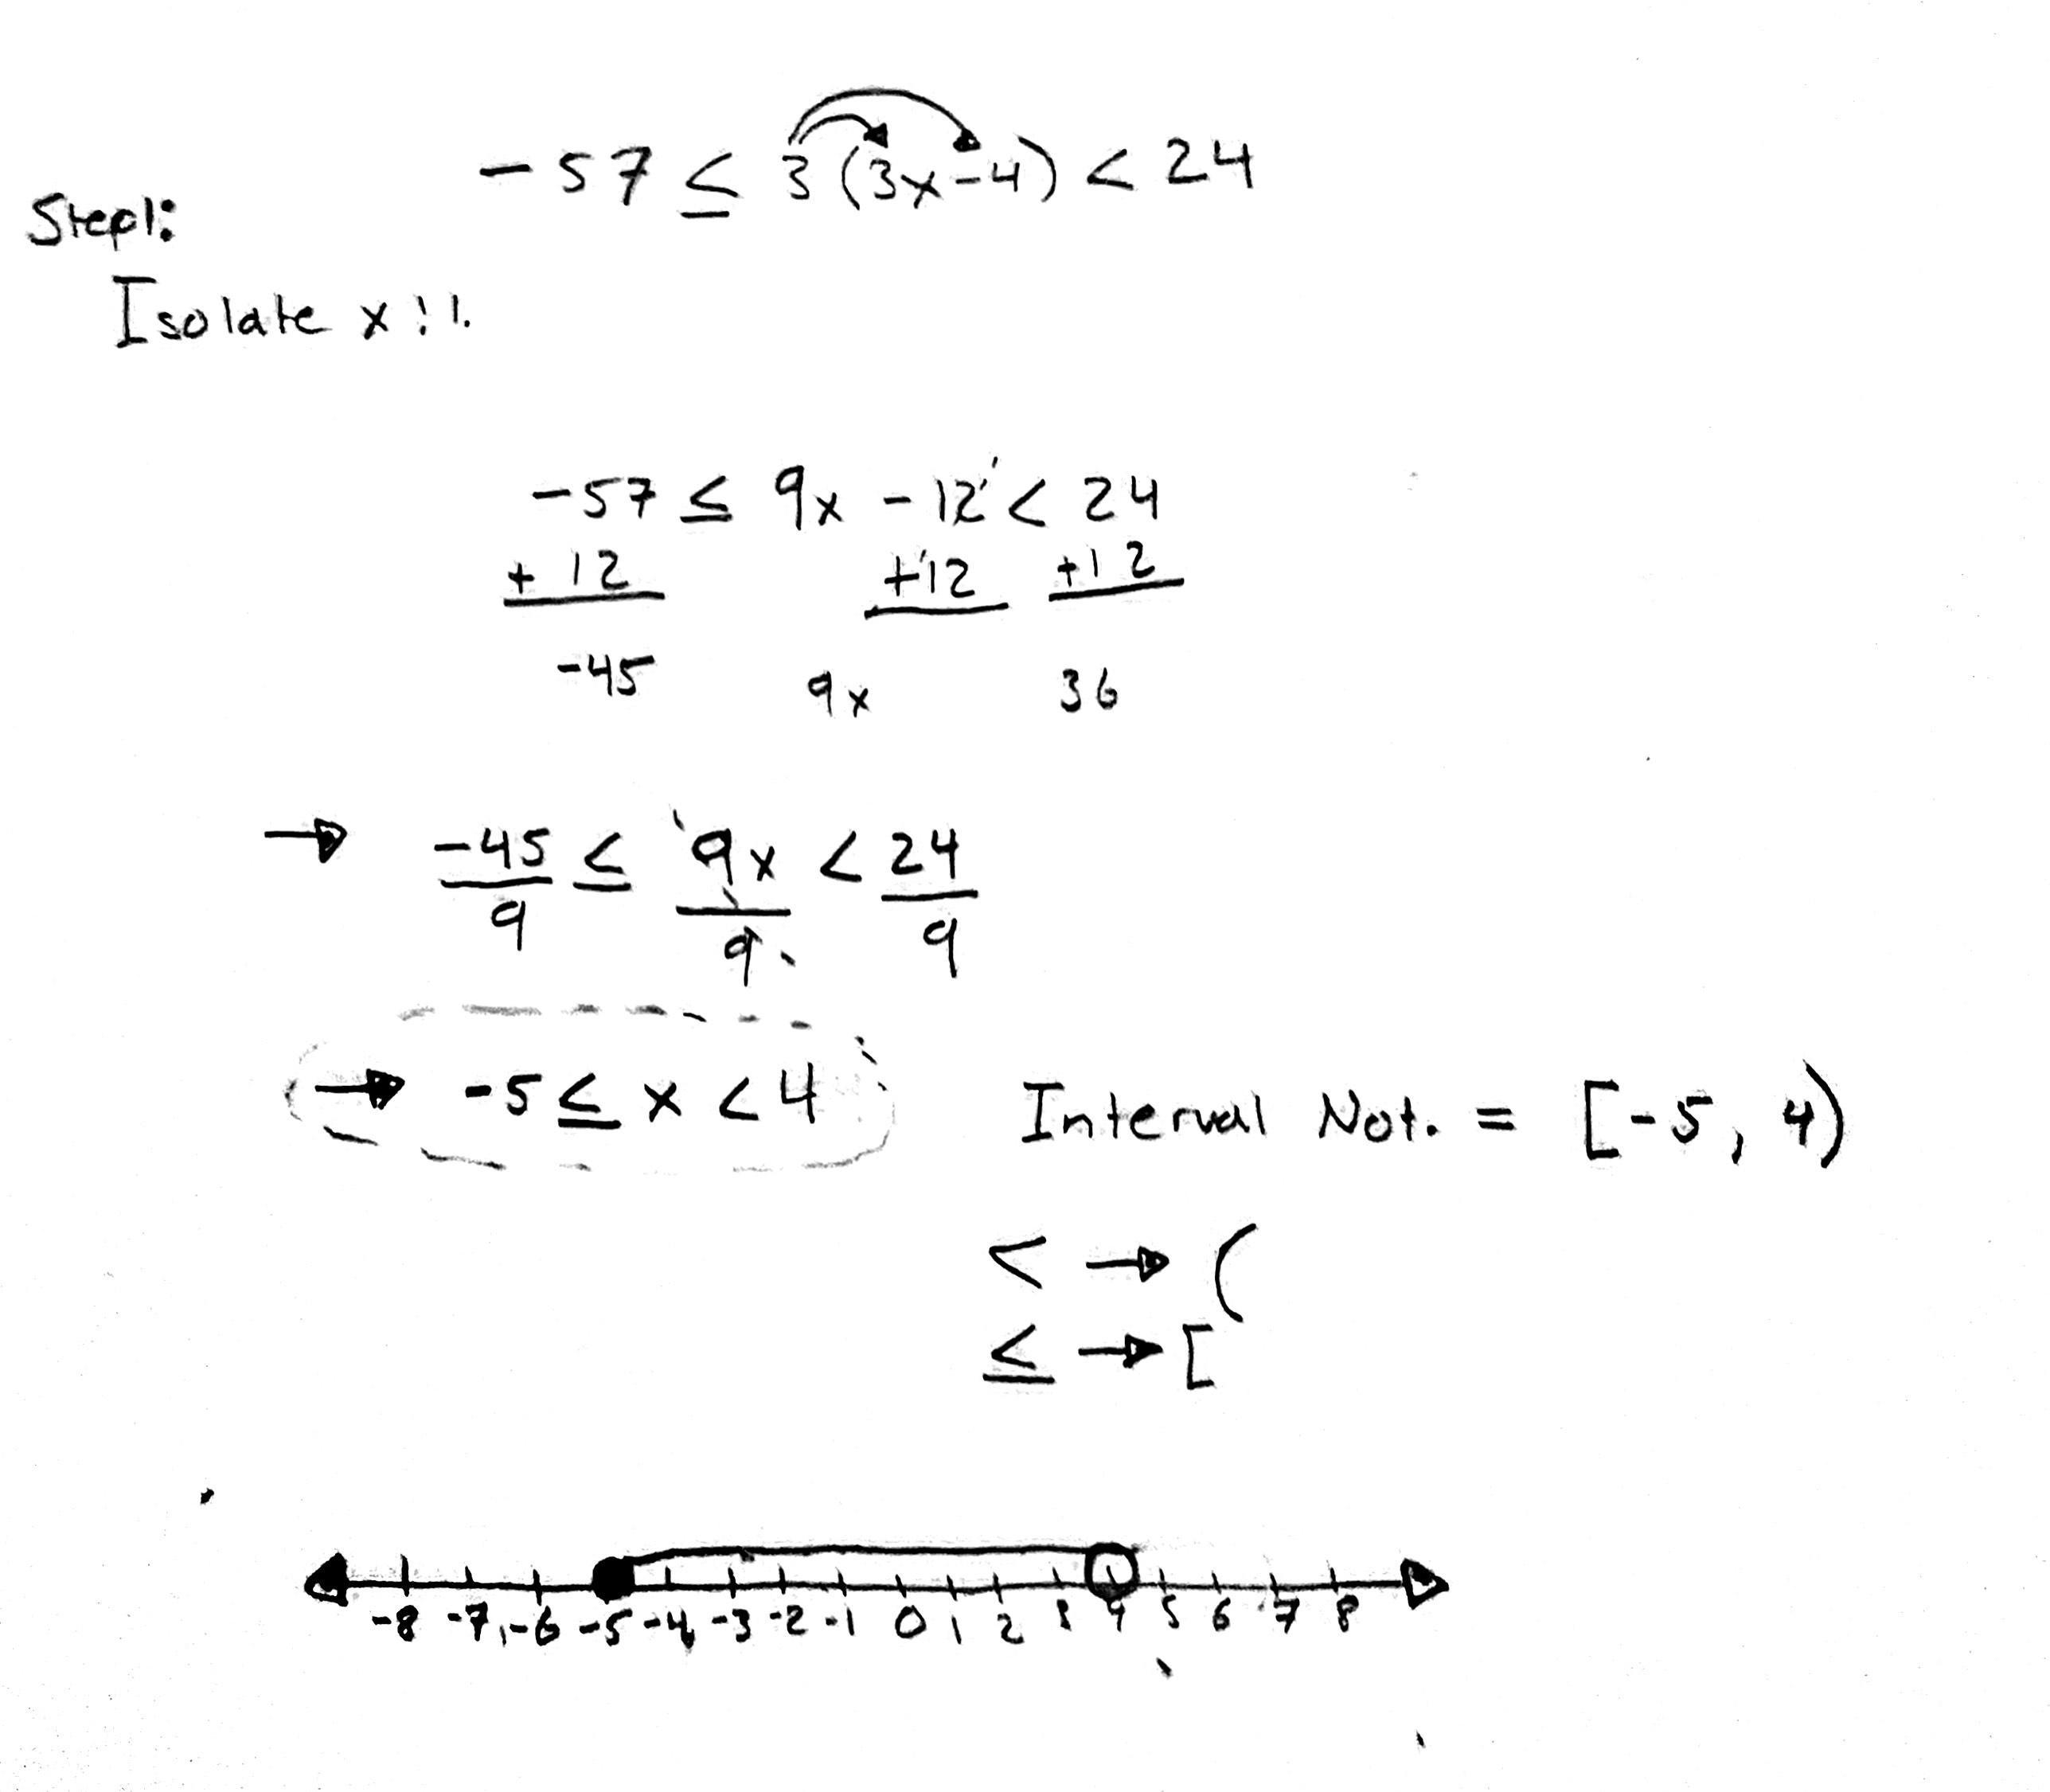 -57 ≤ 3(3x-4) < 24
Step1:
Isolate x!!
-57 ≤ 9x - 12 < 24
+ 12 +12 +12
-45 9x 36
→ -45/9 ≤ 9x/9 < 24/9
→ -5 ≤ x < 4 Interval Not. = [-5, 4)
< → (
≤ → [
-8 -7 -6 -5 -4 -3 -2 -1 0 1 2 3 4 5 6 7 8